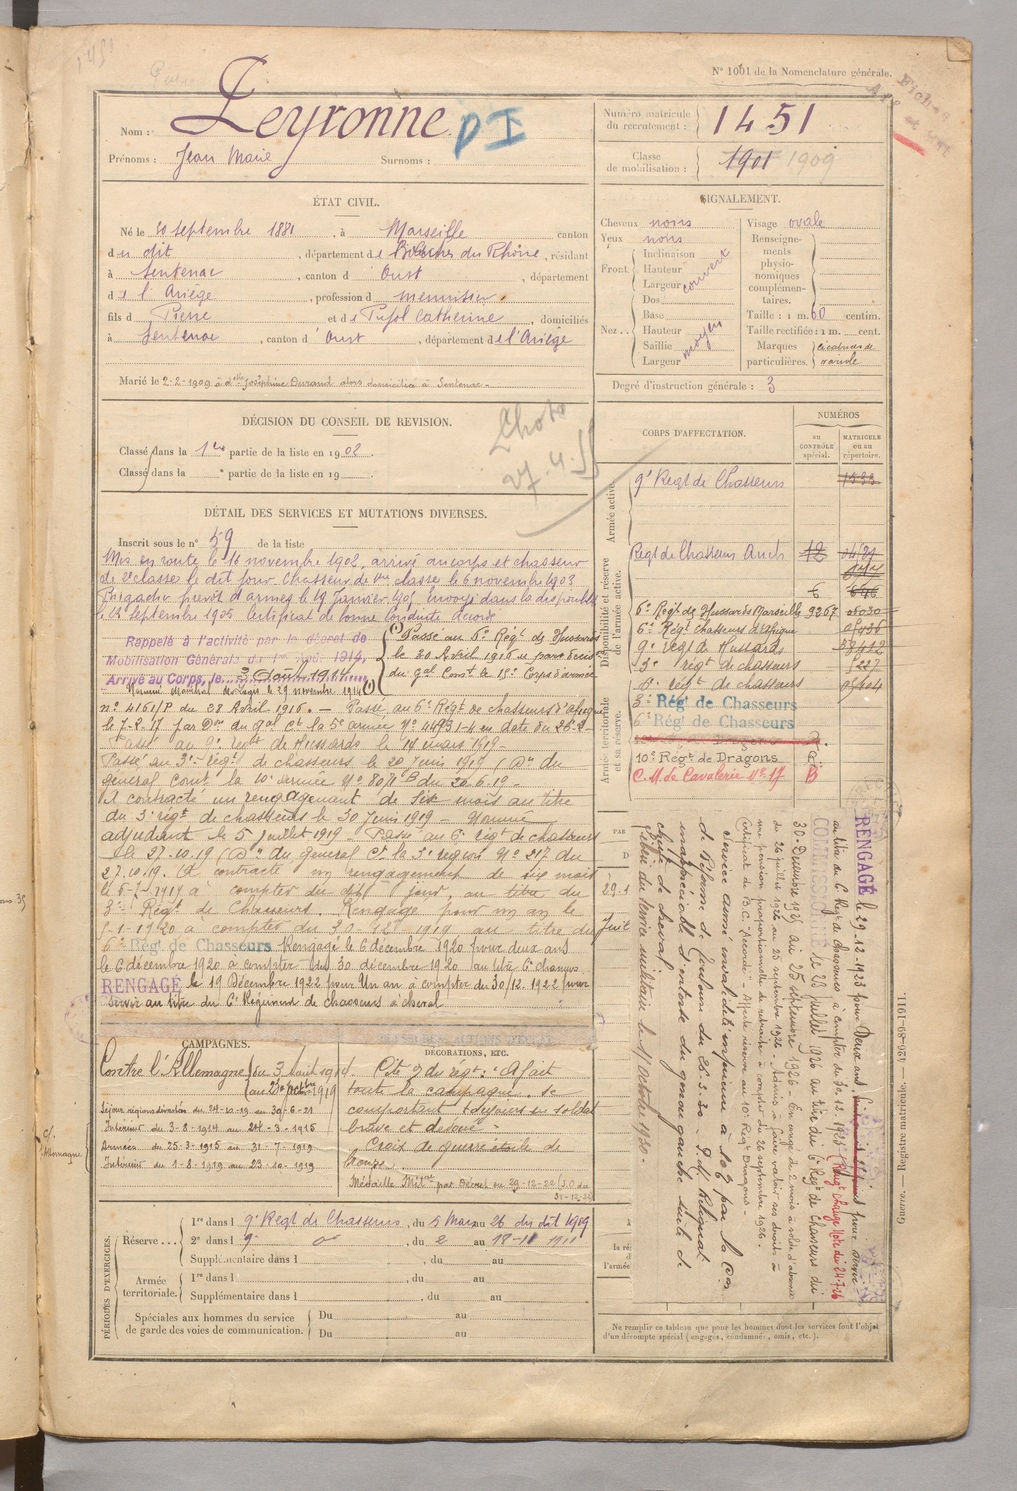 N° 1001 de la Nomenclature générale.
Nom : Peyronne. DI
Prénoms : Jean Marie Surnoms :
Numéro matricule du recrutement : 1451
Classe de mobilisation : 1901 1909
ÉTAT CIVIL.
Né le 20 septembre 1881, à Marseille canton
du dit, département des Bouches du Rhône, résidant
à Sentenac, canton d'Oust, département
de l'Ariège, profession de menuisier
fils de Pierre et de Pujol Catherine, domiciliés
à Sentenac, canton d'Oust, département de l'Ariège
Marié le 2-2-1909 à dlle Joséphine Durand alors domiciliée à Sentenac.
SIGNALEMENT.
Cheveux noirs
Yeux noirs
Front. Inclinaison
Hauteur
Largeur couvert
Nez... Dos
Base
Hauteur
Saillie moyen
Largeur
Visage ovale
Renseignements physionomiques complémentaires.
Taille : 1 m. 60 centim.
Taille rectifiée : 1 m. cent.
Marques particulières. cicatrices de
Degré d'instruction générale : 3
DÉCISION DU CONSEIL DE REVISION.
Classé dans la 1ère partie de la liste en 1902
Classé dans la e partie de la liste en 19
Photo
27.4.
DÉTAIL DES SERVICES ET MUTATIONS DIVERSES.
Inscrit sous le n° 59 de la liste
Mis en route le 16 novembre 1902, arrivé au corps et chasseur
de 2e classe le dit jour. Chasseur de 1re classe le 6 novembre 1903
Brigadier prévôt d'armes le 19 Janvier 1905 envoyé dans la disponibilité
septembre 1905 Certificat de bonne conduite accordé
Rappelé à l'activité par le décret de
Mobilisation Générale du 1er Août 1914,
Arrivé au Corps, le 3 Août 1914
Nommé Maréchal des logis le 29 novembre 1914 (1)
(1) Passé au 6e Régt de Hussards
le 30 Avril 1916
du gal Comt la 15e Corps d'armée
n° 4161/P du 28 Avril 1916. — Passé au 6e Régt de chasseurs d'afrique
le 7-2-17 par Don du gal Ct la 5e armée
Passé au 9e régt de Hussards le 14 mars 1919 —
Passé au 3e régt de chasseurs le 20 Juin 1919 (Dn du
général comt la 10e armée N° du 20.6.19 —
A contracté un rengagement de six mois au titre
du 3e régt de chasseurs le 30 Juin 1919 — Nommé
adjudant le 5 Juillet 1919 — Passé au 6e régt de chasseurs
le 27.10.19 (Dn du général Ct la 3e région N° 217 du
27.10.19. A contracté un rengagement de six mois
à compter du dit jour, au titre du
3e Régt de Chasseurs. Rengagé pour un an le
1-1920 à compter du 30-12-1919 au titre du
6e Régt de Chasseurs Rengagé le 6 décembre 1920 pour deux ans
le 6 décembre 1920 à compter du 30 décembre 1920 au titre 6e chasseurs
RENGAGÉ le 19 Décembre 1922 pour Un an à compter du 30/12.1922 pour
servir au titre du 6e Régiment de chasseurs à cheval
CORPS D'AFFECTATION.
NUMÉROS
au CONTRÔLE spécial.
MATRICULE ou au répertoire.
Armée active.
9e Régt de Chasseurs 1533
Disponibilité et réserve de l'armée active.
Régt de Chasseurs Auch 12
6e Régt de Hussards Marseille 9267
6e Régt chasseurs d'afrique
9e régt de Hussards
3e régt de chasseurs
6e régt de chasseurs
Armée territoriale et sa réserve.
3e Régt de Chasseurs
6e Régt de Chasseurs
10e Régt de Dragons
C. M. de Cavalerie N° 17 B
RENGAGÉ le 29-12-1923 pour Deux ans pour servir
au titre du 6e Régt de chasseurs à compter du 30.12.1923
COMMISSIONNÉ le 28 juillet 1926 au titre du 6e Régt de Chasseurs du
30 Décembre 1925 au 25 septembre 1926 — En congé de 2 mois à solde d'absence
du 26 juillet 1926 au 25 septembre 1926 — Admis à faire valoir ses droits à
une pension proportionnelle de retraite à compter du 26 septembre 1926 —
Certificat de B.C. "Accordé" — Affecté réserve au 10e Régt Dragons —
Service armé invalidité inférieure à 10% par la Con
de Réforme de Toulouse du 26.3.30 —
inappréciable d'entorse du genou gauche suite de
chute de cheval
Libéré du service militaire le 1er octobre 1930.
CAMPAGNES.
Contre l'Allemagne du 3 Août 1914
au 23 octobre 1919
Séjour régions dévastées du 24-10-19 au 30-6-21
Intérieur du 3-8-1914 au 24-3-1915
Armées du 25-3-1915 au 31-7-1919
Intérieur du 1-8-1919 au 23-10-1919
c/ Allemagne
DÉCORATIONS, ETC.
Cité O. du régt : "A fait
toute la campagne, se
comportant toujours en soldat
brave et dévoué"
Croix de guerre étoile de
bronze
Médaille Mitre par Décret du 29-12-22 (J.O. du
31-12-22
PÉRIODES D'EXERCICES.
Réserve...
1re dans l 9e Régt de Chasseurs, du 5 Mars au 26 du dit 1909
2e dans l 9e do du 2 au 18-11 1911
Supplémentaire dans l , du au
Armée territoriale.
1re dans l , du au
Supplémentaire dans l , du au
Spéciales aux hommes du service de garde des voies de communication.
Du au
Du au
Ne remplir ce tableau que pour les hommes dont les services font l'objet
d'un décompte spécial (engagés, condamnés, omis, etc.).
Guerre. — Registre matricule. — 426-89-1911.